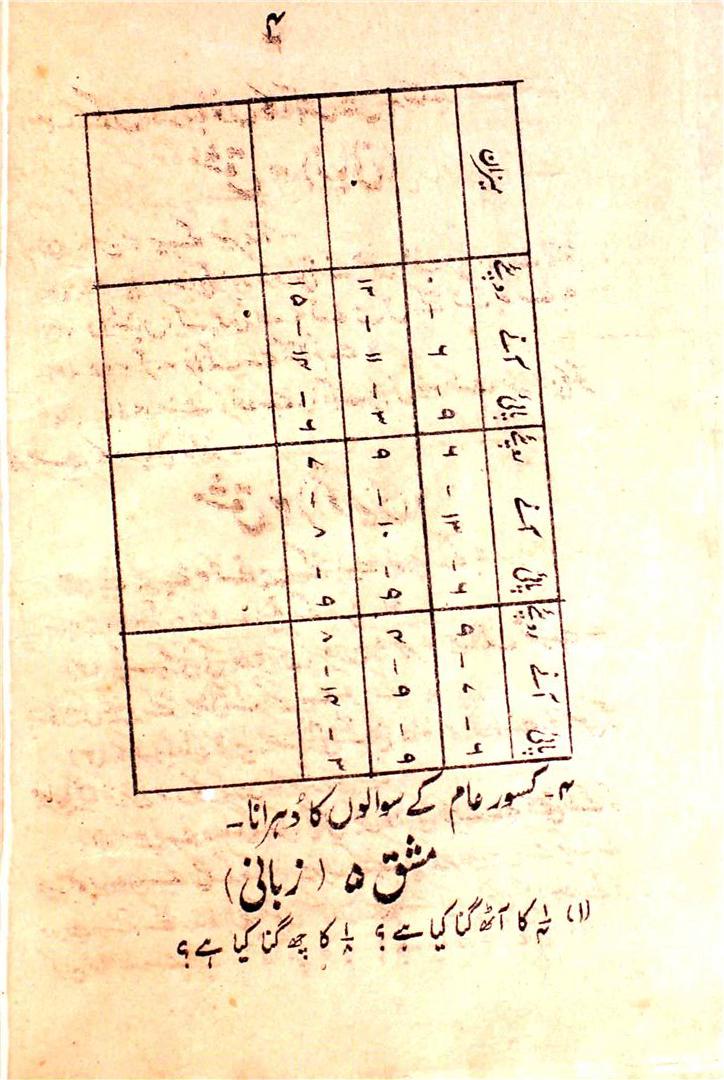 ۴
میزان روپے آنے پائی روپے آنے پائی روپے آنے پائی
۰ - ۶ - ۹ ۶ - ۱۳ - ۶ ۹ - ۷ - ۶
۱۲ - ۱۱ - ۳ ۹ - ۱۰ - ۹ ۳ - ۹ - ۹
۱۵ - ۱۳ - ۶ ۷ - ۸ - ۹ ۸ - ۱۲ - ۳
۴- کسور عام کے سوالوں کا دُہرانا۔
مشق ۵ (زبانی)
(۱) ۱/۴ کا آٹھ گنا کیا ہے؟ ۱/۸ کا چھ گنا کیا ہے؟